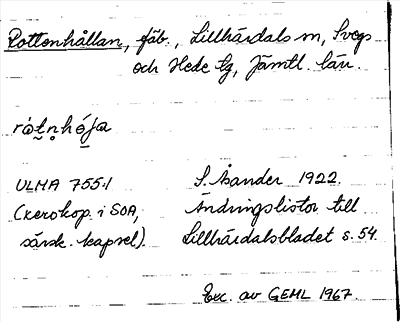 Rottenhållan, fäb., Lillhärdals sn, Svegs
och Hede tg, Jämtl. län.
ròtn̥hóĺa
ULMA 755:1
(xerokop. i SOA,
särsk. kapsel).
S. Åsander 1922.
Ändringslistor till
Lillhärdalsbladet s. 54.
Exc. av GEML 1967.